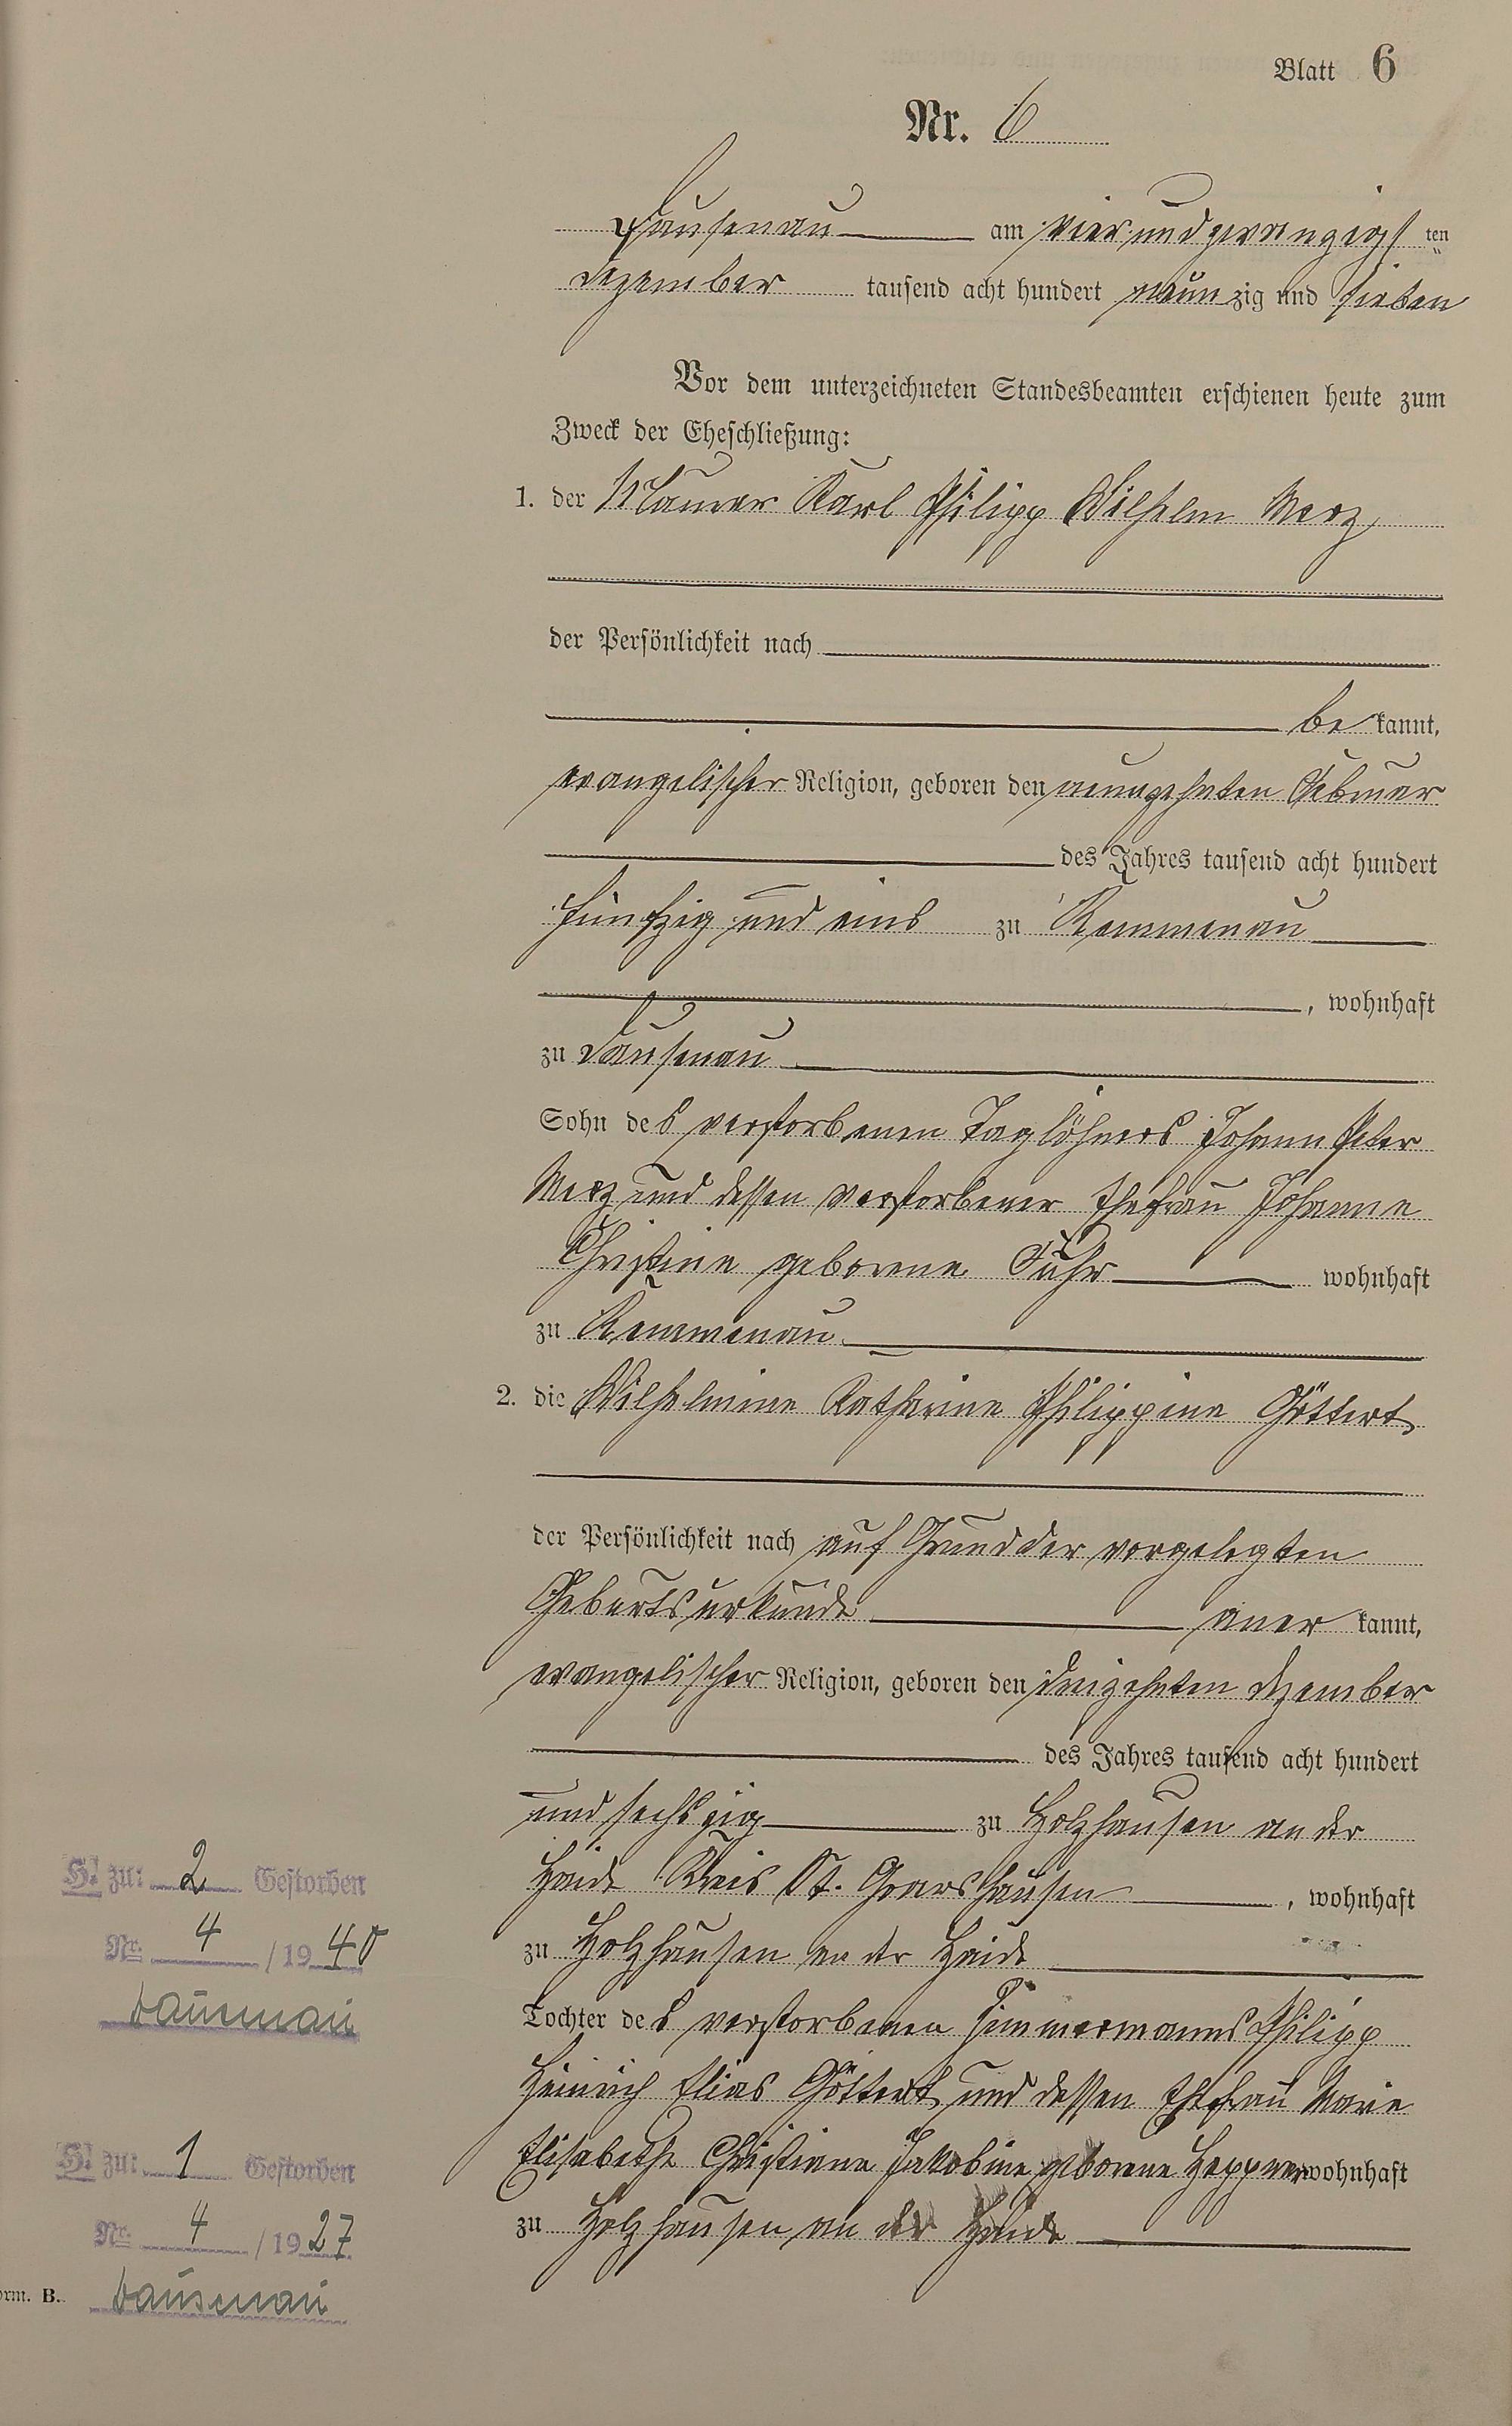 Blatt 6
Nr. 6
Dausenau am vier und zwanzigsten
Dezember tausend acht hundert neunzig und sieben
Vor dem unterzeichneten Standesbeamten erschienen heute zum
Zweck der Eheschließung:
1. der Maurer Karl Philipp Wilhelm Merz
der Persönlichkeit nach
be kannt,
evangelischer Religion, geboren den neunzehnten Februar
des Jahres tausend acht hundert
fünfzig und eins zu Kemmenau
, wohnhaft
zu Dausenau
Sohn des verstorbenen Taglöhners Johann Peter
Merz und dessen verstorbener Ehefrau Johanne
Christine geborene Fuhr wohnhaft
zu Kemmenau.
2. die Wilhelmine Katharine Philippine Göttert
der Persönlichkeit nach auf Grund der vorgelegten
Geburtsurkunde aner kannt,
evangelischer Religion, geboren den dreizehnten Dezember
des Jahres tausend acht hundert
und sechszig zu Holzhausen an der
Haide Kreis St. Goarshausen, wohnhaft
zu Holzhausen an der Haide
Tochter des verstorbenen Zimmermanns Philipp
Heinrich Elias Göttert und dessen Ehefrau Marie
Elisabethe Christiane Jakobine geborene wohnhaft
zu Holzhausen an der Haide
H. zu: 2 Gestorben
Nr. 4 / 19 40
Dausenau
H. zu: 1 Gestorben
Nr. 4 / 19 27
Dausenau
orm. B.